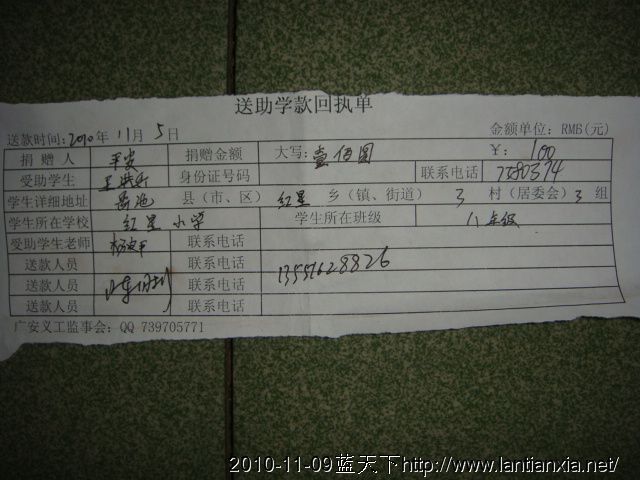 送助学款回执单
送款时间:2010年 11月 5日 金额单位: RMB(元)
捐赠人 平安 捐赠金额 大写: 壹佰圆 ¥: 100
受助学生 身份证号码 联系电话 7580374
学生详细地址 岳池 县(市、区) 红星 乡(镇、街道) 3 村(居委会) 3 组
学生所在学校 红星小学 学生所在班级 八年级
受助学生老师 联系电话
送款人员 联系电话 13551628826
送款人员 联系电话
送款人员 联系电话
广安义工监事会: QQ 739705771
2010-11-09蓝天下http://www.lantianxia.net/